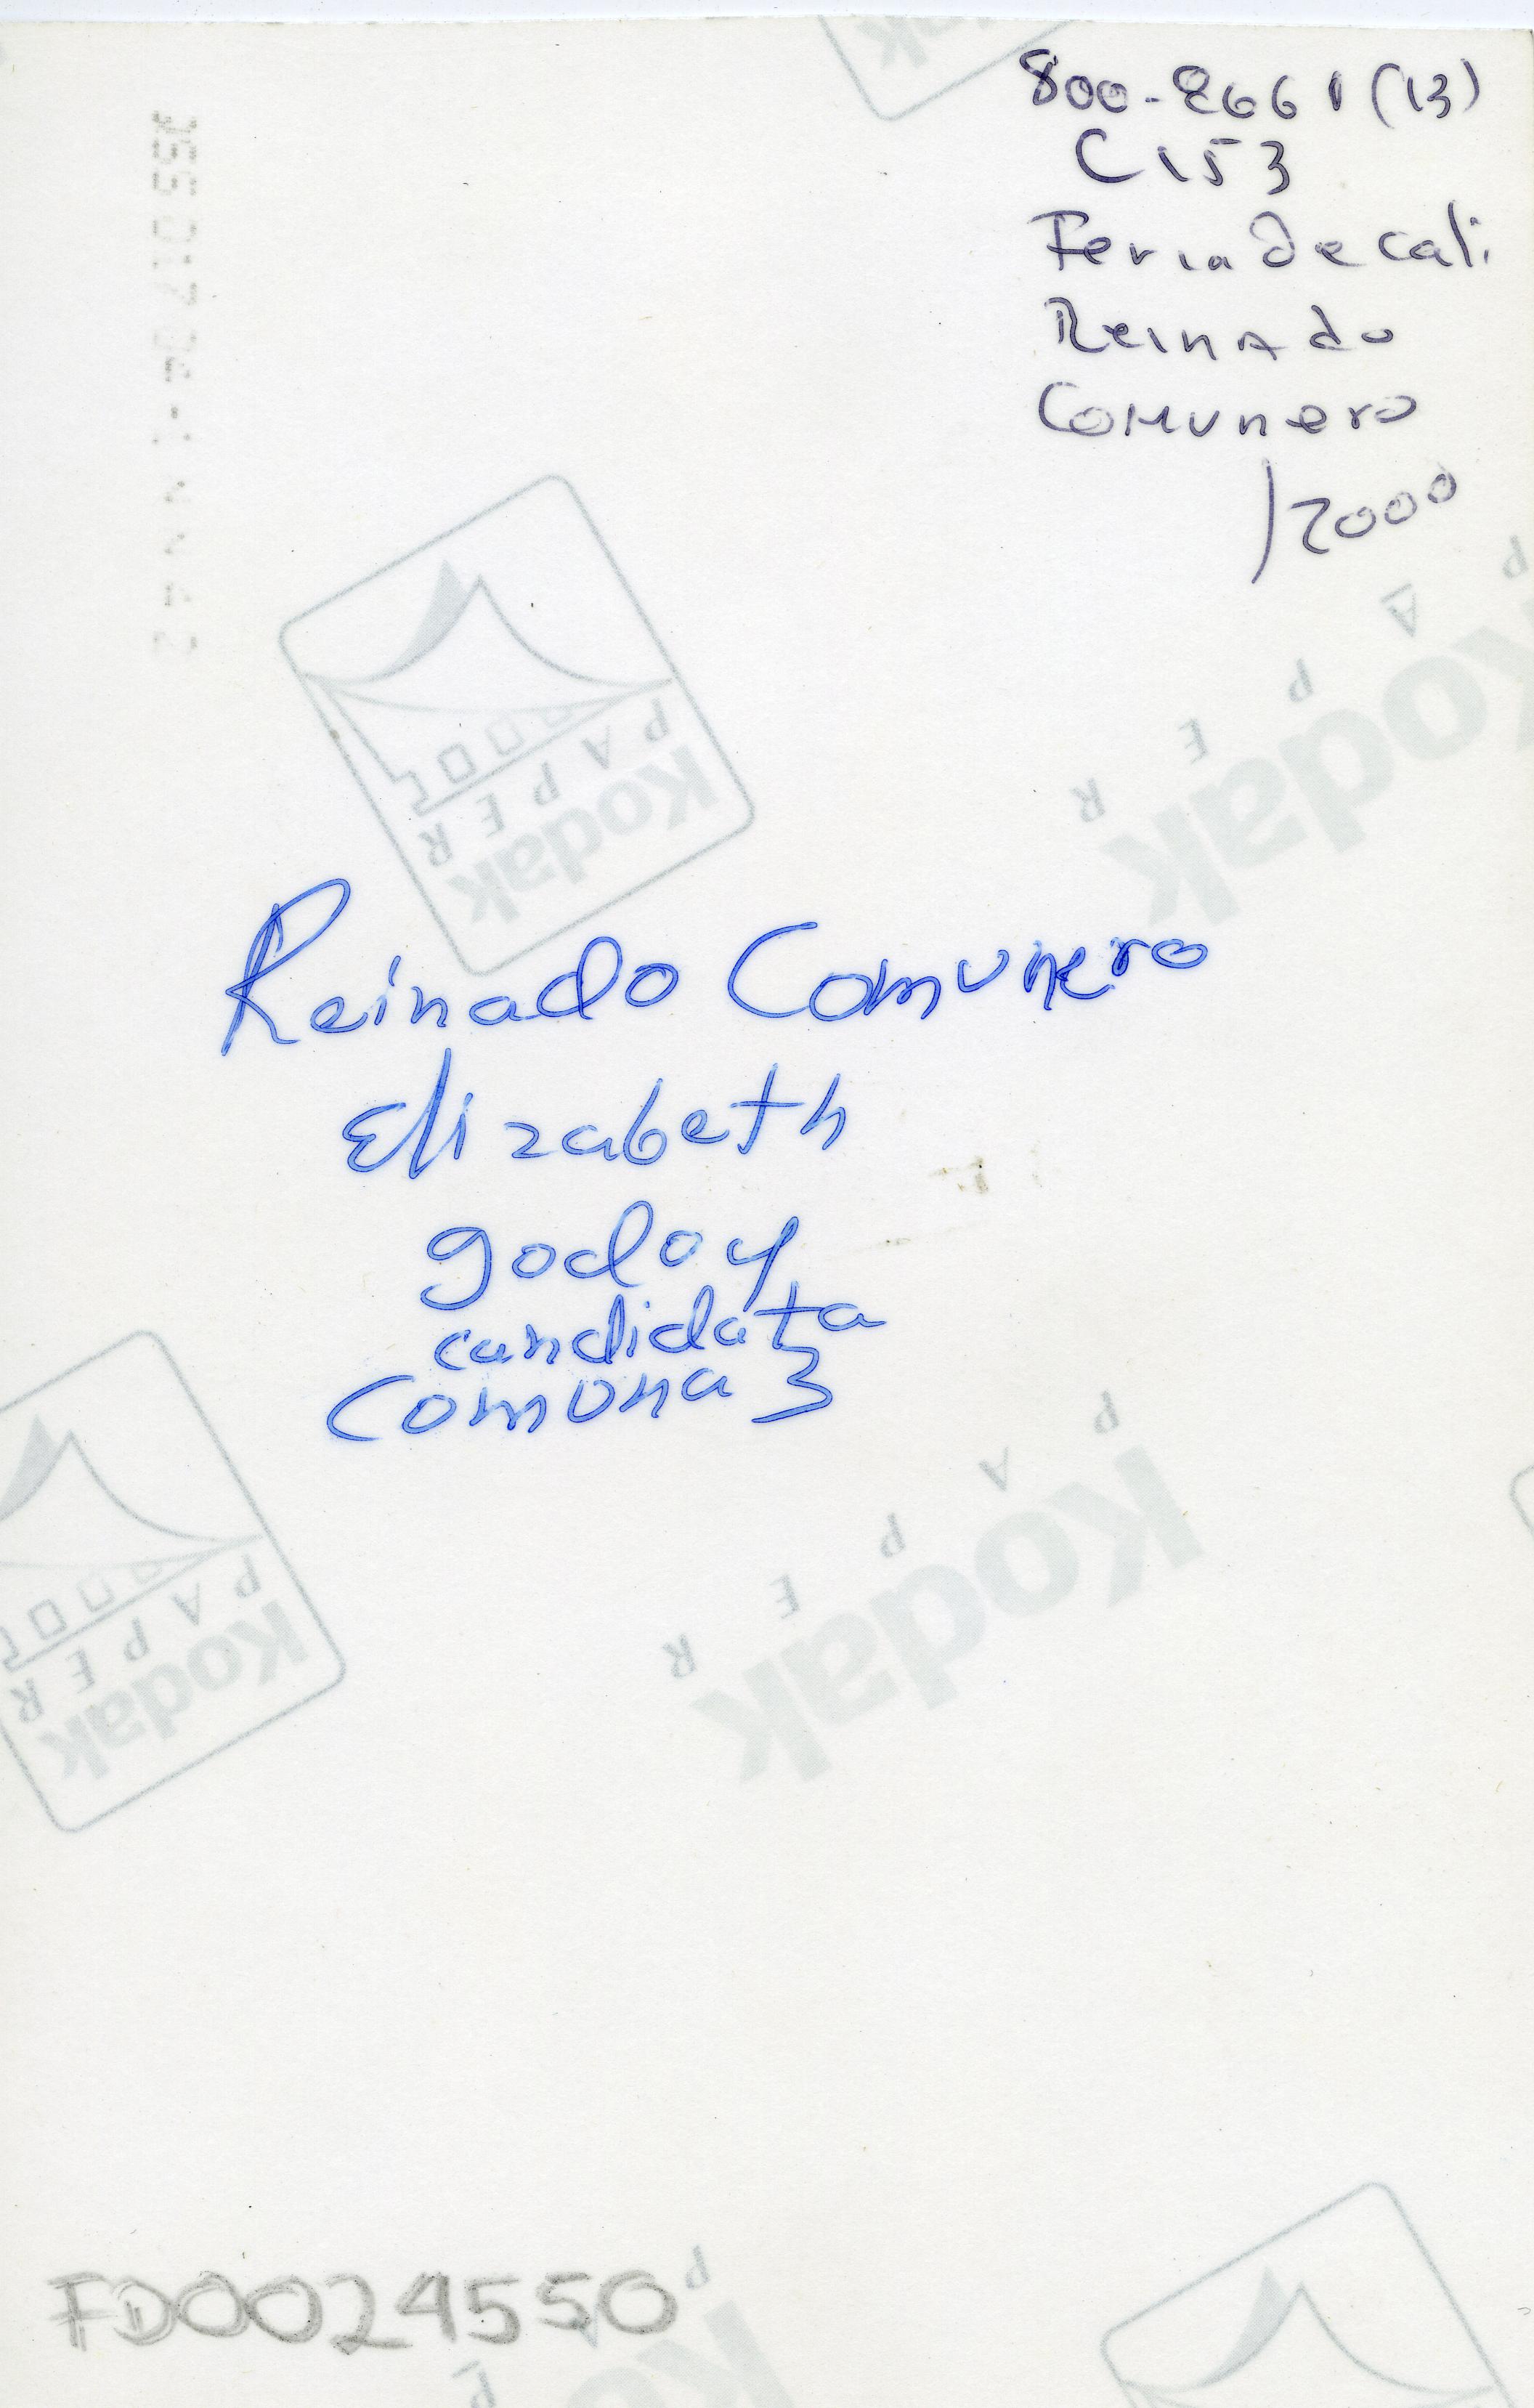 800-8661 (13)
C153
Feria de cali
Reinado
Comunero
/2000
Kodak
PAPER
Kodak
PAPER
Reinado Comunero
Elizabeth
godoy
candidata
Comuna 3
Kodak
PAPER
Kodak
PAPER
FD0024550